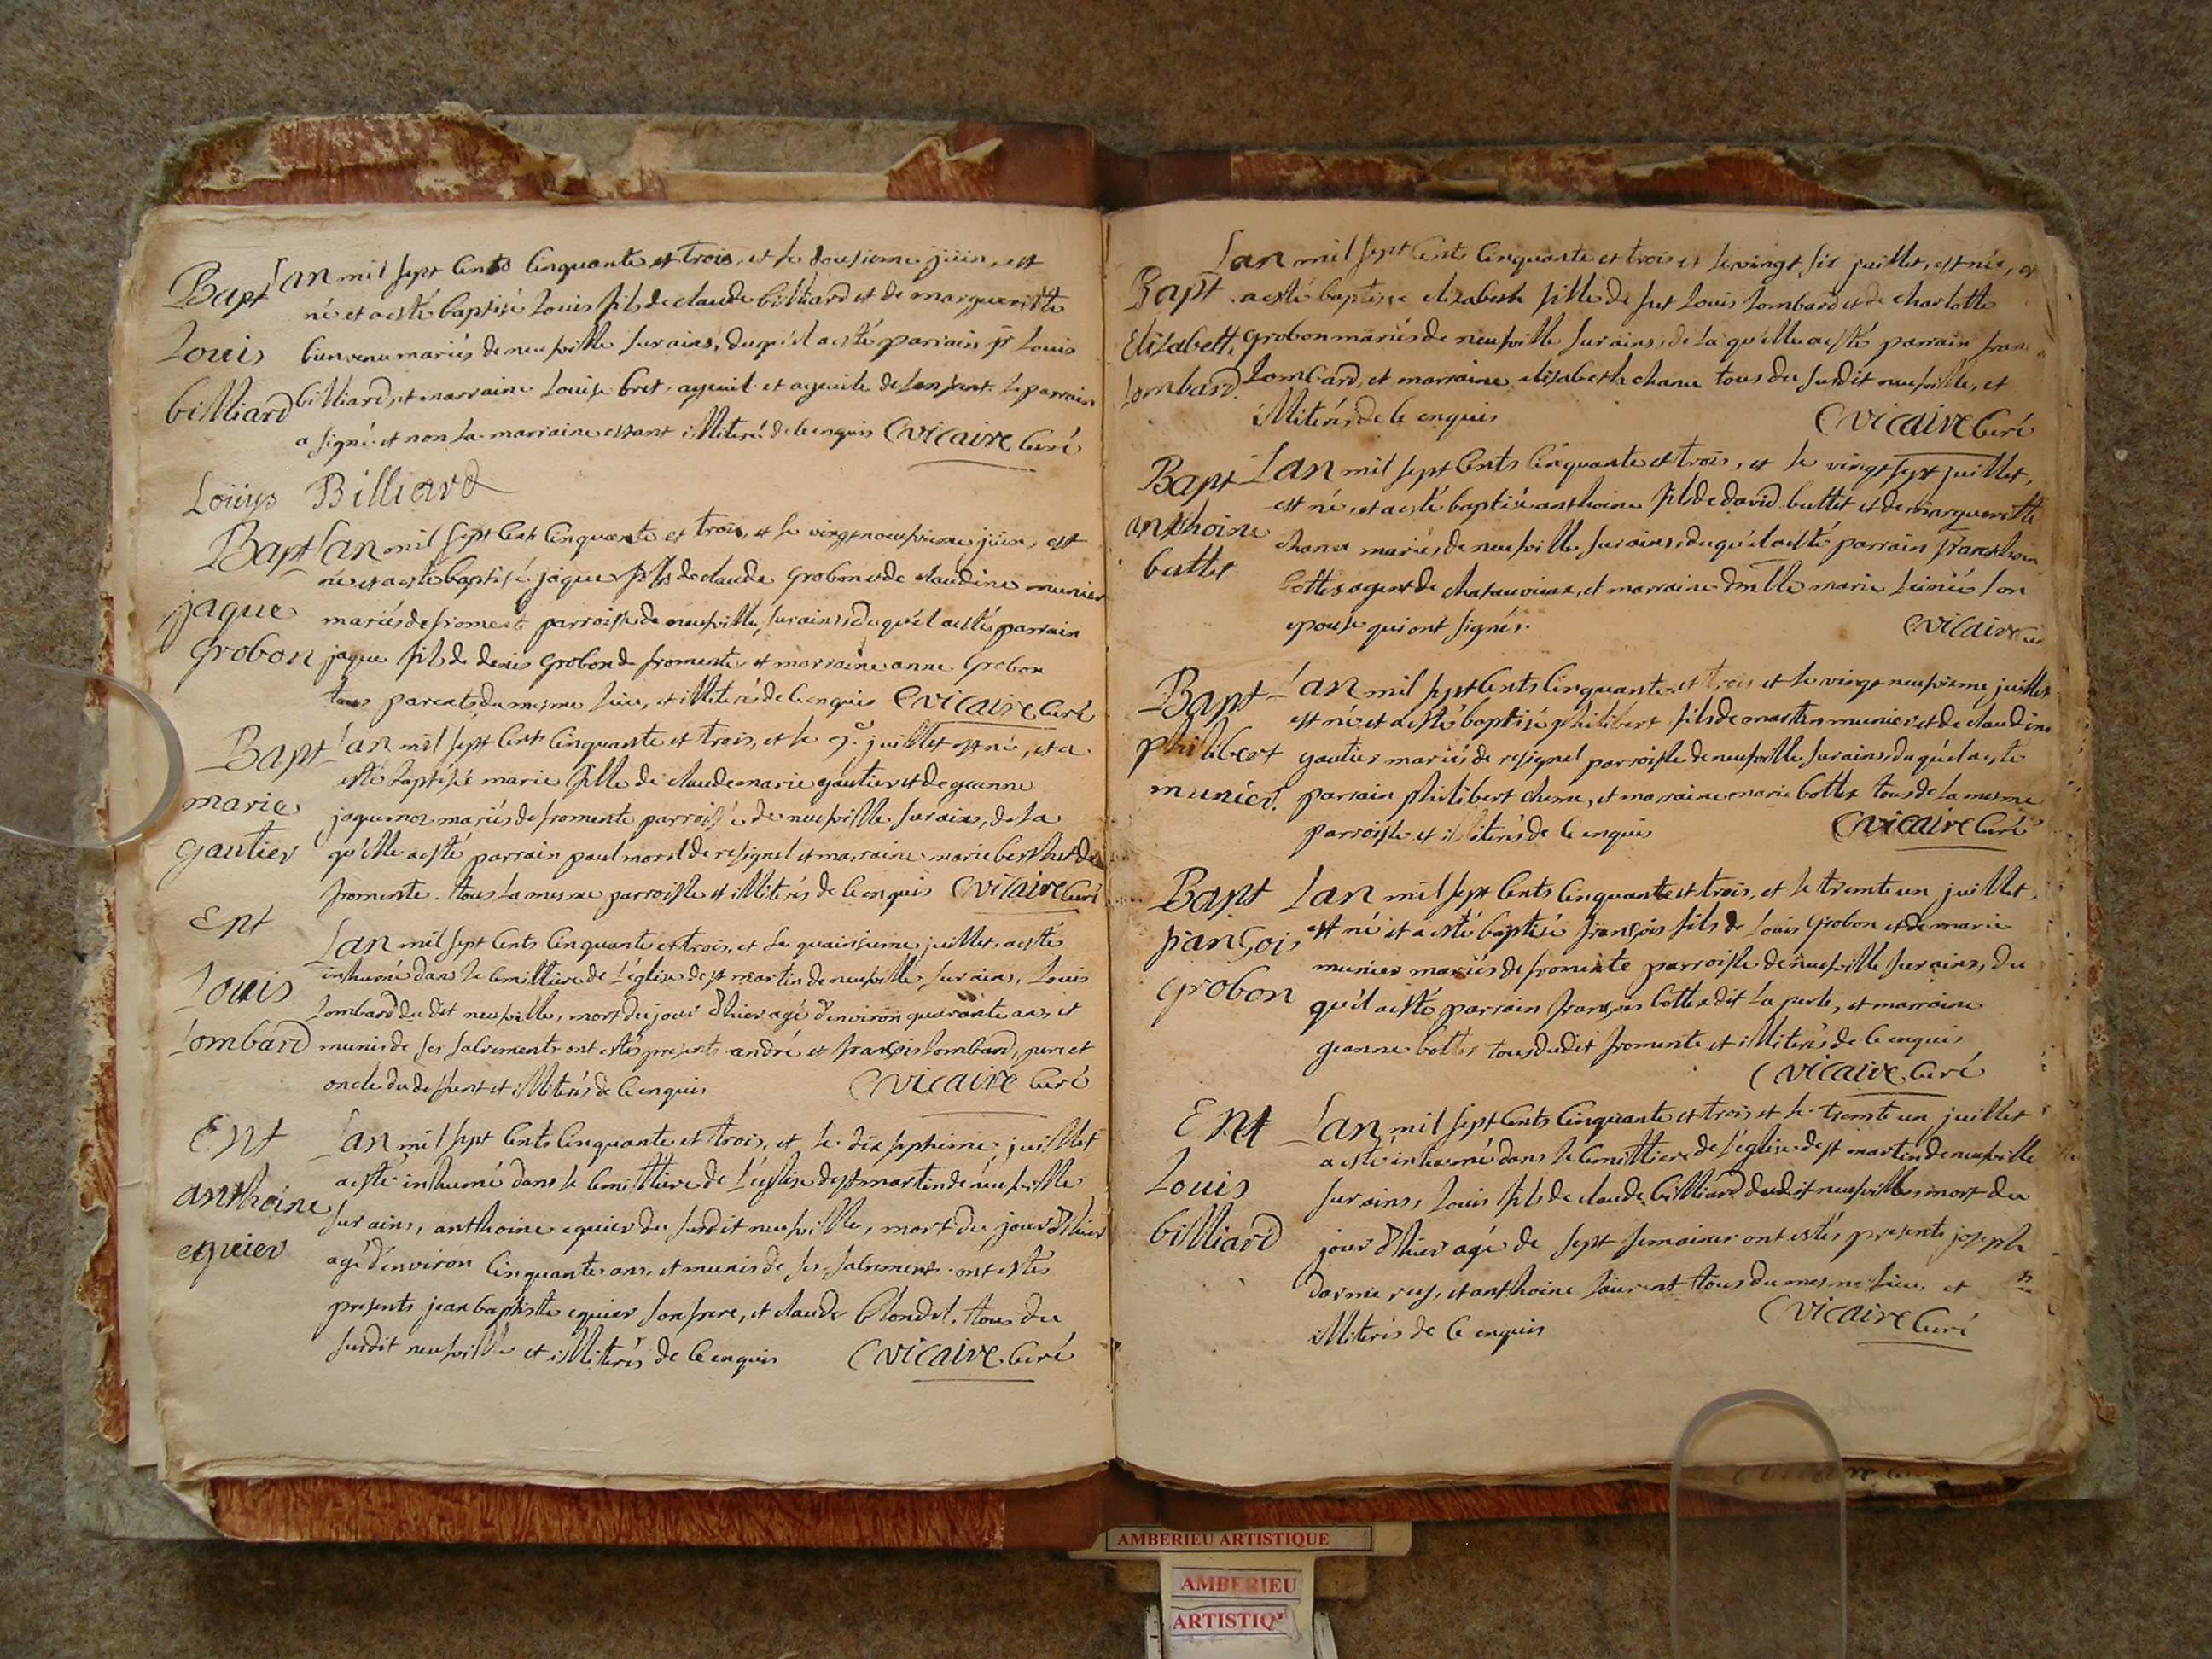 Bapt
Louis
billiard
Lan mil sept cents cinquante et trois, et le dousieme juin, est
né et a esté baptisé Louis fils de claude billiard et de margueritte
bienvenu mariés de neufville sur ains, duquél a esté parrain sr Louis
billiard, et marraine Louise bret, ayeuil et ayeuile de lenfant. Le parrain
a signé et non la marraine estant illiteré de ce enquis Cvicaire Curé
Loüys Billiard
Bapt
jaque
Grobon
Lan mil sept cent cinquante et trois, et le vingt neufvieme juin, est
né et a esté baptisé jaque fils de claude Grobon et de claudine munier
mariés de fromente parroisse de neufville sur ains, duquél a esté parrain
jaque fils de denis Grobon de fromente, et marraine anne Grobon
tous parents du mesme lieu, et illiterés de ce enquis Cvicaire Curé
Bapt
marie
gautier
Lan mil sept cent cinquante et trois, et le 9e juillet est né, et a
esté baptisé marie fille de claude marie gautier et de geanne
jaquemoz mariés de fromente parroisse de neufville sur ains, de la
quélle a esté parrain paul morel de resignel et marraine marie berthet de
fromente. tous la mesme parroisse et illiterés de ce enquis Cvicaire Curé
Ent
Louis
Lombard
Lan mil sept cents cinquante et trois, et le quainsieme juillet, a esté
inhumé dans le cemittiere de l'église de st martin de neufville, sur ains, Louis
Lombard du dit neufville, mort du jour d'hier agé d'environ quarante ans, et
munis de ses sacrements ont estés presents andré et françois Lombard, pere et
oncle du deffunt et illiterés de ce enquis Cvicaire Curé
Ent
anthoine
equier
Lan mil sept cents cinquante et trois, et le dix septieme juillet
a esté inhumé dans le cemittiere de l'église de st martin de neufville
sur ains, anthoine equier du susdit neufville, mort du jour d'hier
agé d'environ cinquante ans, et munis de ses sacrements ont estés
presents jean baptiste equier son frere, et claude blondel, tous du
susdit neufville et illiterés de ce enquis Cvicaire Curé
Bapt
Elizabeth
Lombard
Lan mil sept cents cinquante et trois et le vingt six juillet, est née, et
a esté baptisée elizabeth fille de fut Louis Lombard et de charlotte
grobon mariés de neufville sur ains, de la quélle a estés parrain
Lombard, et marraine elizabeth chanu tous du susdit neufville, et
illiterés de ce enquis Cvicaire Curé
Bapt
anthoine
buttet
Lan mil sept cents cinquante et trois, et le vingt sept juillet,
est né, et a esté baptisé anthoine fils de david buttet et de margueritte
mariés de neufville, sur ains, duquél a esté parrain
agent de chateauvieux, et marraine dmlle marie son
epouse qui ont signés. Cvicaire
Bapt
philibert
munier.
Lan mil sept cents cinquante et trois et le vingt neufvieme juillet
est né et a esté baptisé philibert fils de martin munier et de claudine
gautier mariés de resignel parroisse de neufville sur ains, duquél a esté
parrain philibert chene, et marraine marie bottex tous de la mesme
parroisse et illiterés de ce enquis Cvicaire Curé
Bapt
françois
grobon
Lan mil sept cents cinquante et trois, et le trente un juillet,
est né et a esté baptisé françois fils de Louis grobon et de marie
munier mariés de fromente parroisse de neufville sur ains, du
quél a esté parrain françois bottex dit la perle, et marraine
geanne bottex tous dudit fromente et illiterés de ce enquis
Cvicaire Curé
Ent
Louis
billiard
Lan mil sept cents cinquante et trois et le trente un juillet
a esté inhumé dans le cemittiere de l'église de st martin de neufville
sur ains, Louis fils de claude billiard dudit neufville mort du
jour d'hier agé de sept semaines ont estés presents joseph
et anthoine laurent tous du mesme lieu, et
illiterés de ce enquis Cvicaire Curé
AMBERIEU ARTISTIQUE
AMBERIEU
ARTISTIQ